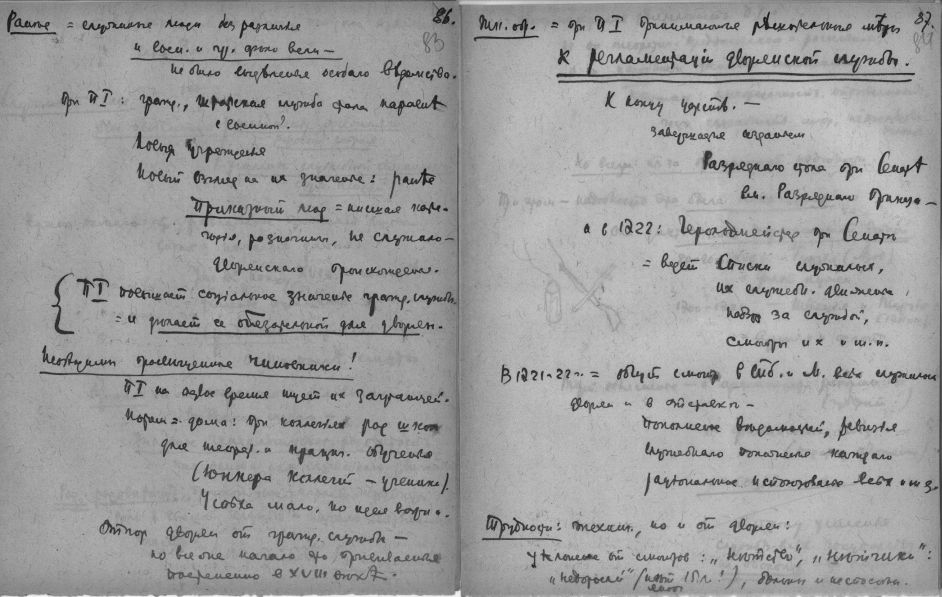 86.
83
Ранее = служилые люди без различия
и воен. и гр. дела вели —
не было выделения особого ведомства.
при П I: гражд., штатская служба стала наравне
с военной.
Новые учреждения
Новый взгляд на их значение: ранее
Приказный люд = низшая кате-
гория, разночинц., не служило-
дворянского происхождения.
П I повышает социальное значение гражд. службы
= и делает ее обязательной для дворян.
Необходимы просвещенные чиновники!
П I на первое время ищет их заграницей.
Потом = дома: при коллегиях ряд школ
для теорет. и практ. обучения
(Юнкера коллегий – ученики).
Успеха мало, но идея верна.
Отпор дворян от гражд. службы —
но все же начало это прививается
постепенно в XVIII веке.
87.
84
= при П I принимались решительные меры
К регламентации дворянской службы.
К концу царств. —
завершается изданием
Разрядного стола при Сенате
вм. Разрядного Приказа —
а в 1722: Герольдмейстер при Сенате
= ведет списки служилых,
их служебн. движение,
надзор за службой,
смотры их и т. п.
В 1721-22 г. = общий смотр в СПб. и М. всех служилых
дворян и в отставке —
пополнение выбывающих, ревизия
служебного положения каждого
рациональное использование всех и т. д.
Трудности: технич., но и от дворян:
уклонение от смотров: „нетство", „нетчики":
„недоросли" (15 л.!), больны и неспособны.